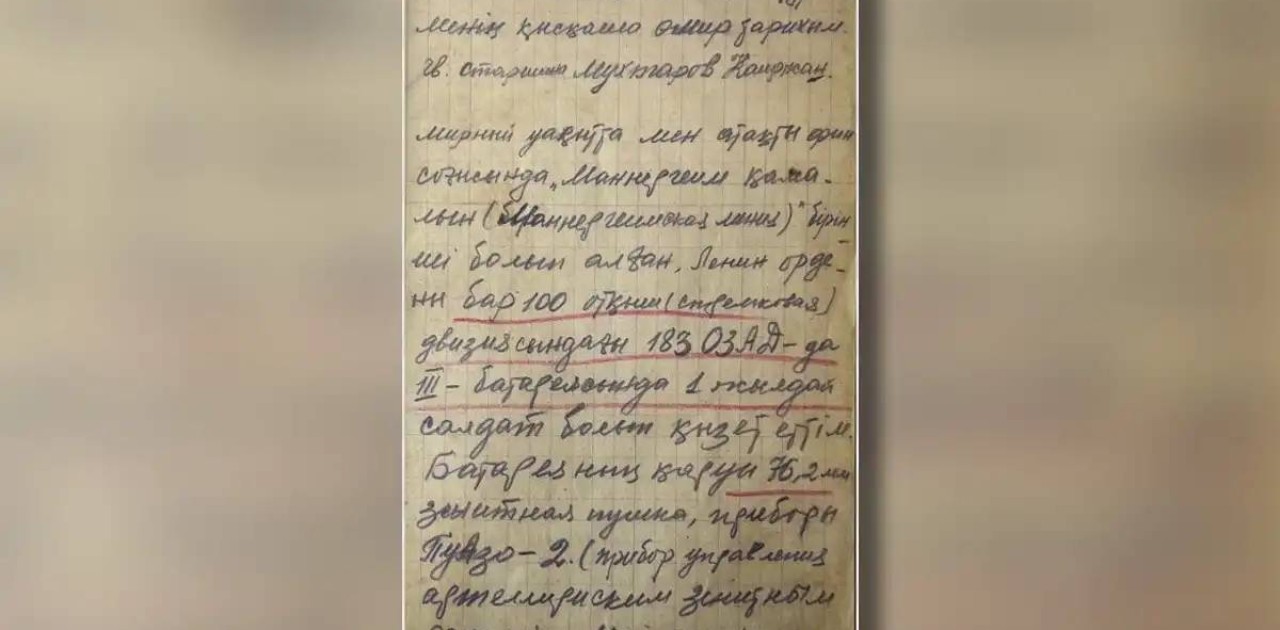 менің қысқаша өмир тарихым.
гв. старшина Мухтаров Каиржан.
мирный уақытта мен атақты фин
соғысында „Маннергейм қама-
лын (Маннергеимская линия)" бірін
ші болып алған, Ленин орде-
ні бар 100 отқыш (стрелковая)
двизиясындағы 183 ОЗАД-да
III - батареясында 1 жылдай
салдат болып қызет еттім.
Батареяның қаруы 76,2 мм
зыитная пушка, приборы
ПуАзо-2. (прибор управления
артеллириским зенитным